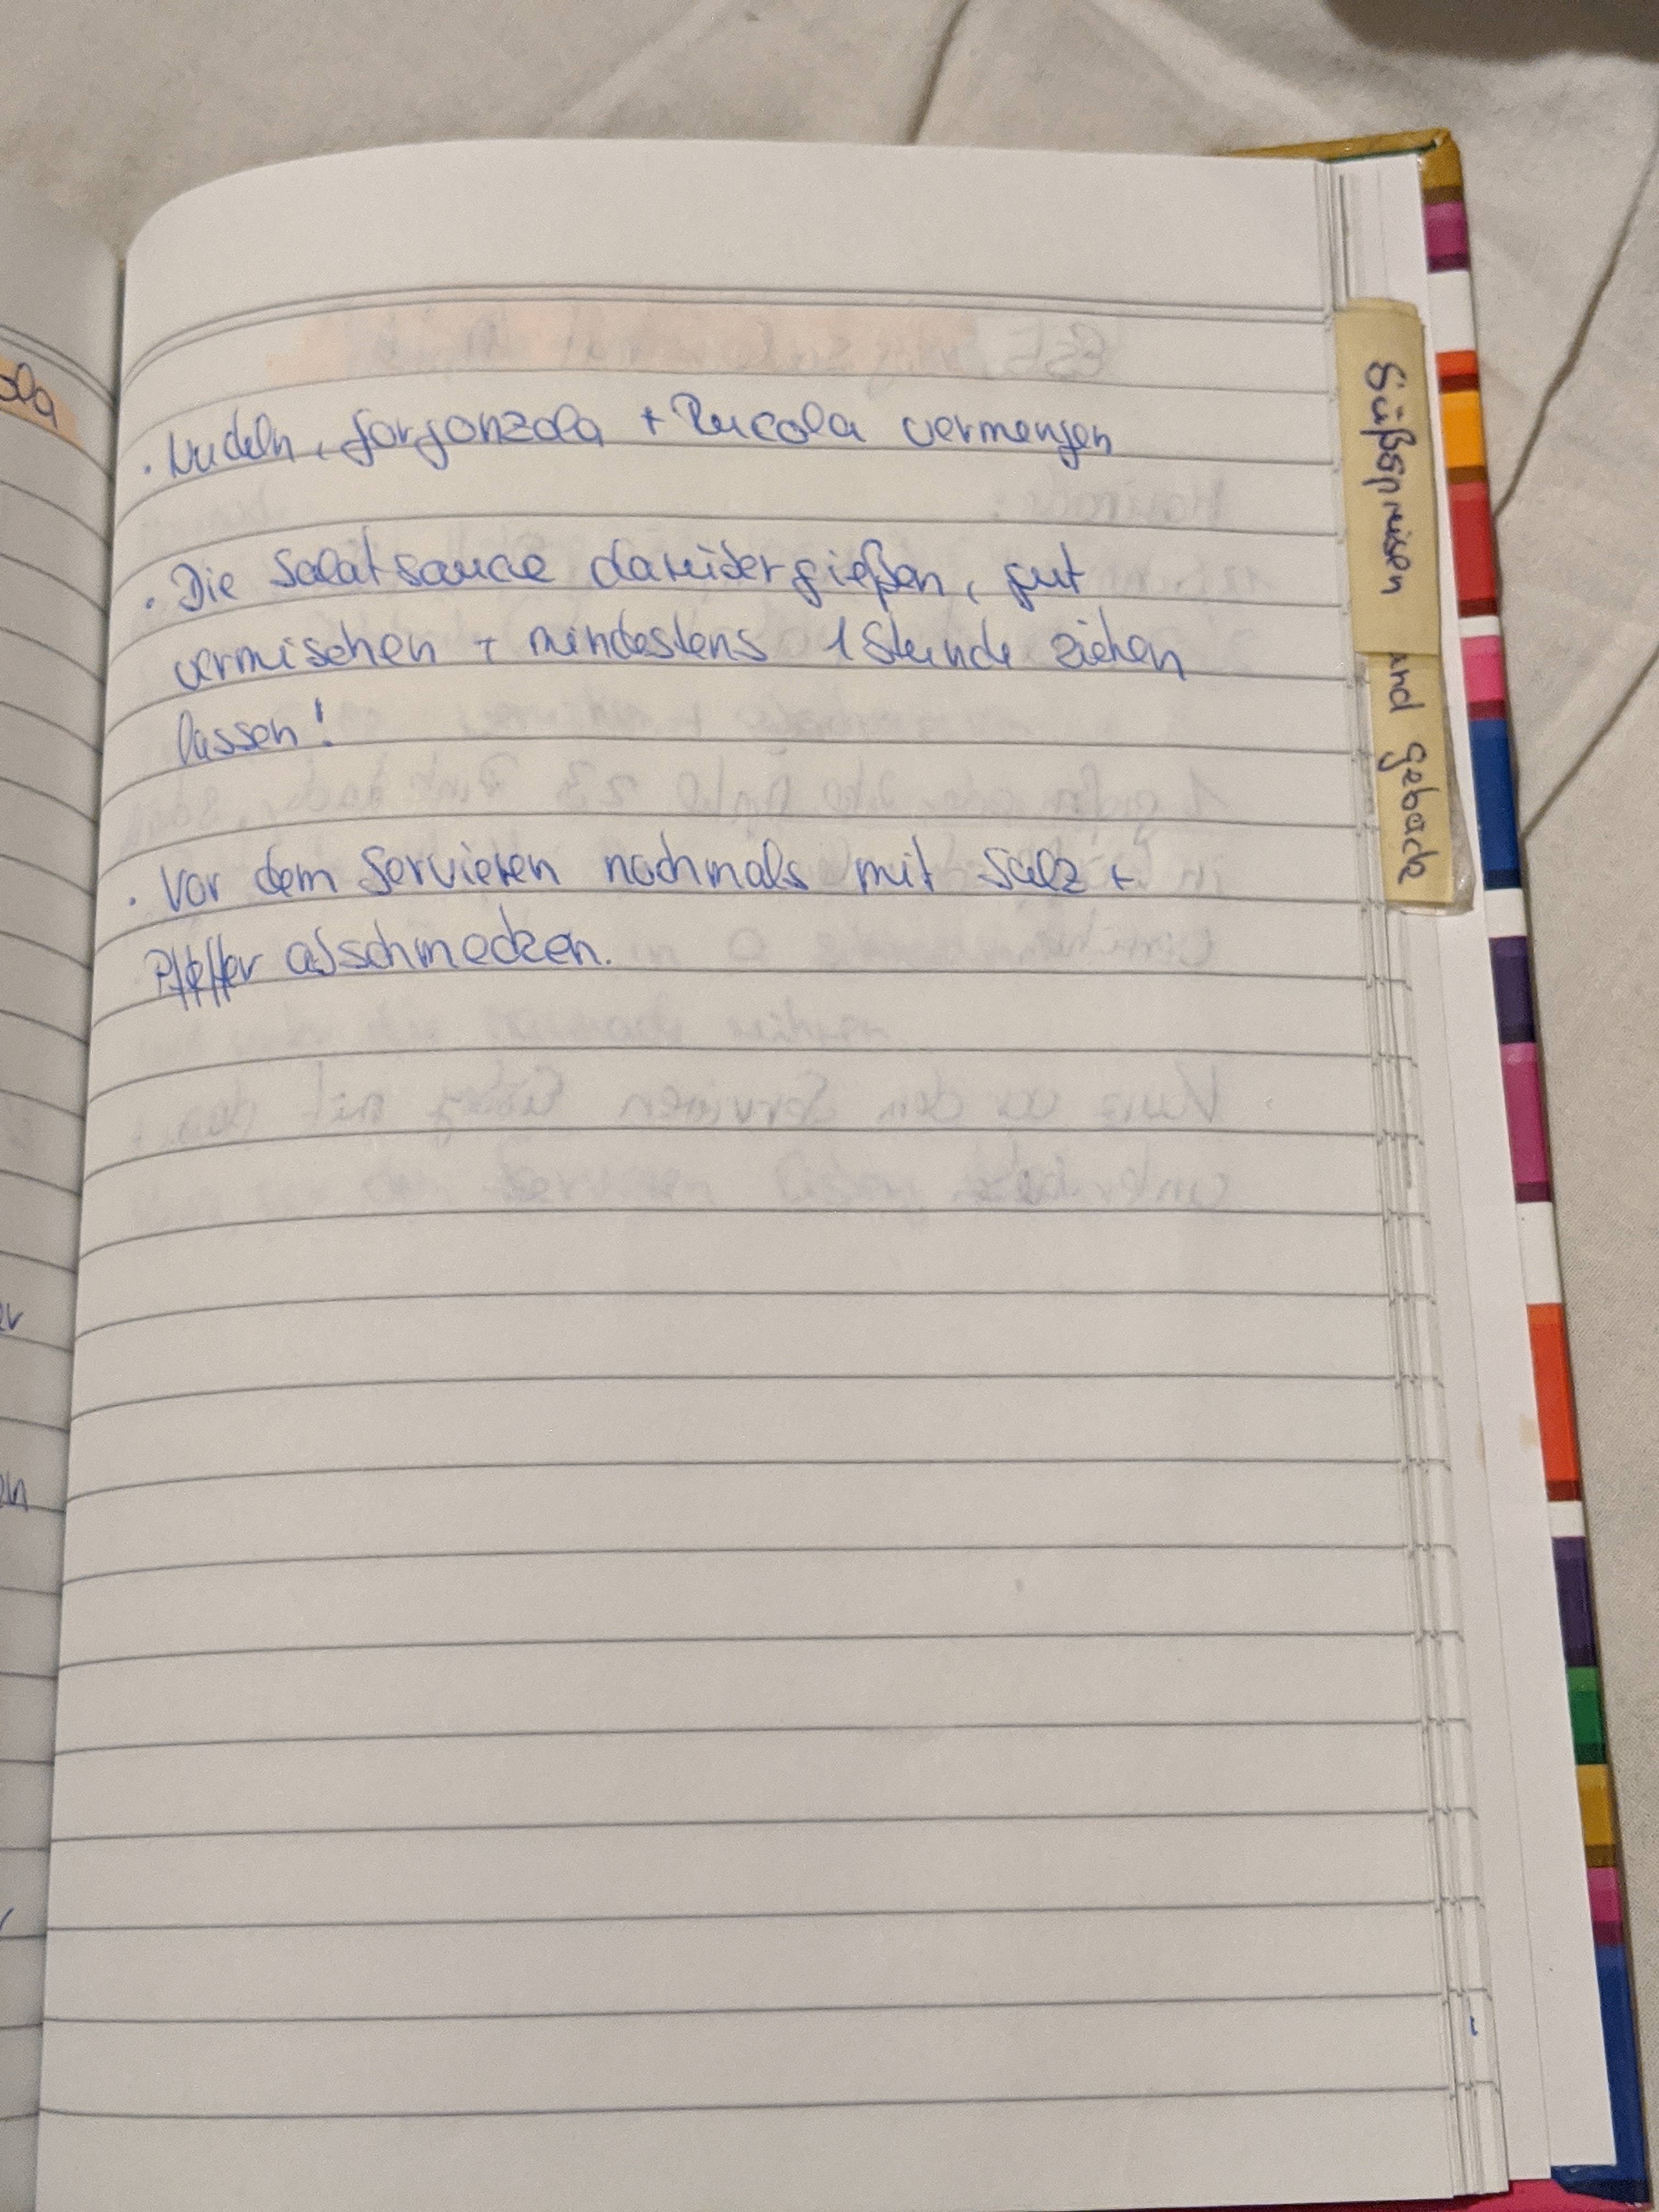 ola
· Nudeln, Gorgonzola + Rucola vermengen
· Die Salatsauce darübergießen, gut
vermischen + mindestens 1 Stunde ziehen
lassen!
· Vor dem Servieren nochmals mit Salz +
Pfeffer abschmecken.
Süßspreisen
and Gebäck